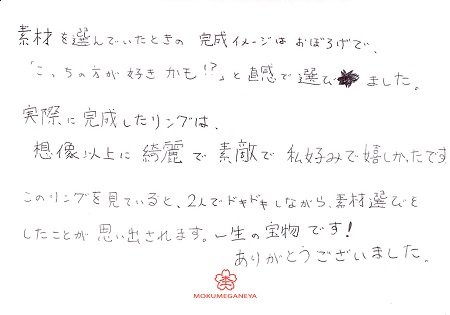 素材を選んでいたときの 完成イメージはおぼろげで、
「こっちの方が好きかも!?」と直感で選びました。
実際に完成したリングは、
想像以上に綺麗で素敵で私好みで嬉しかったです
このリングを見ていると、2人でドキドキしながら、素材選びを
したことが思い出されます。一生の宝物です!
ありがとうございました。
MOKUMEGANEYA